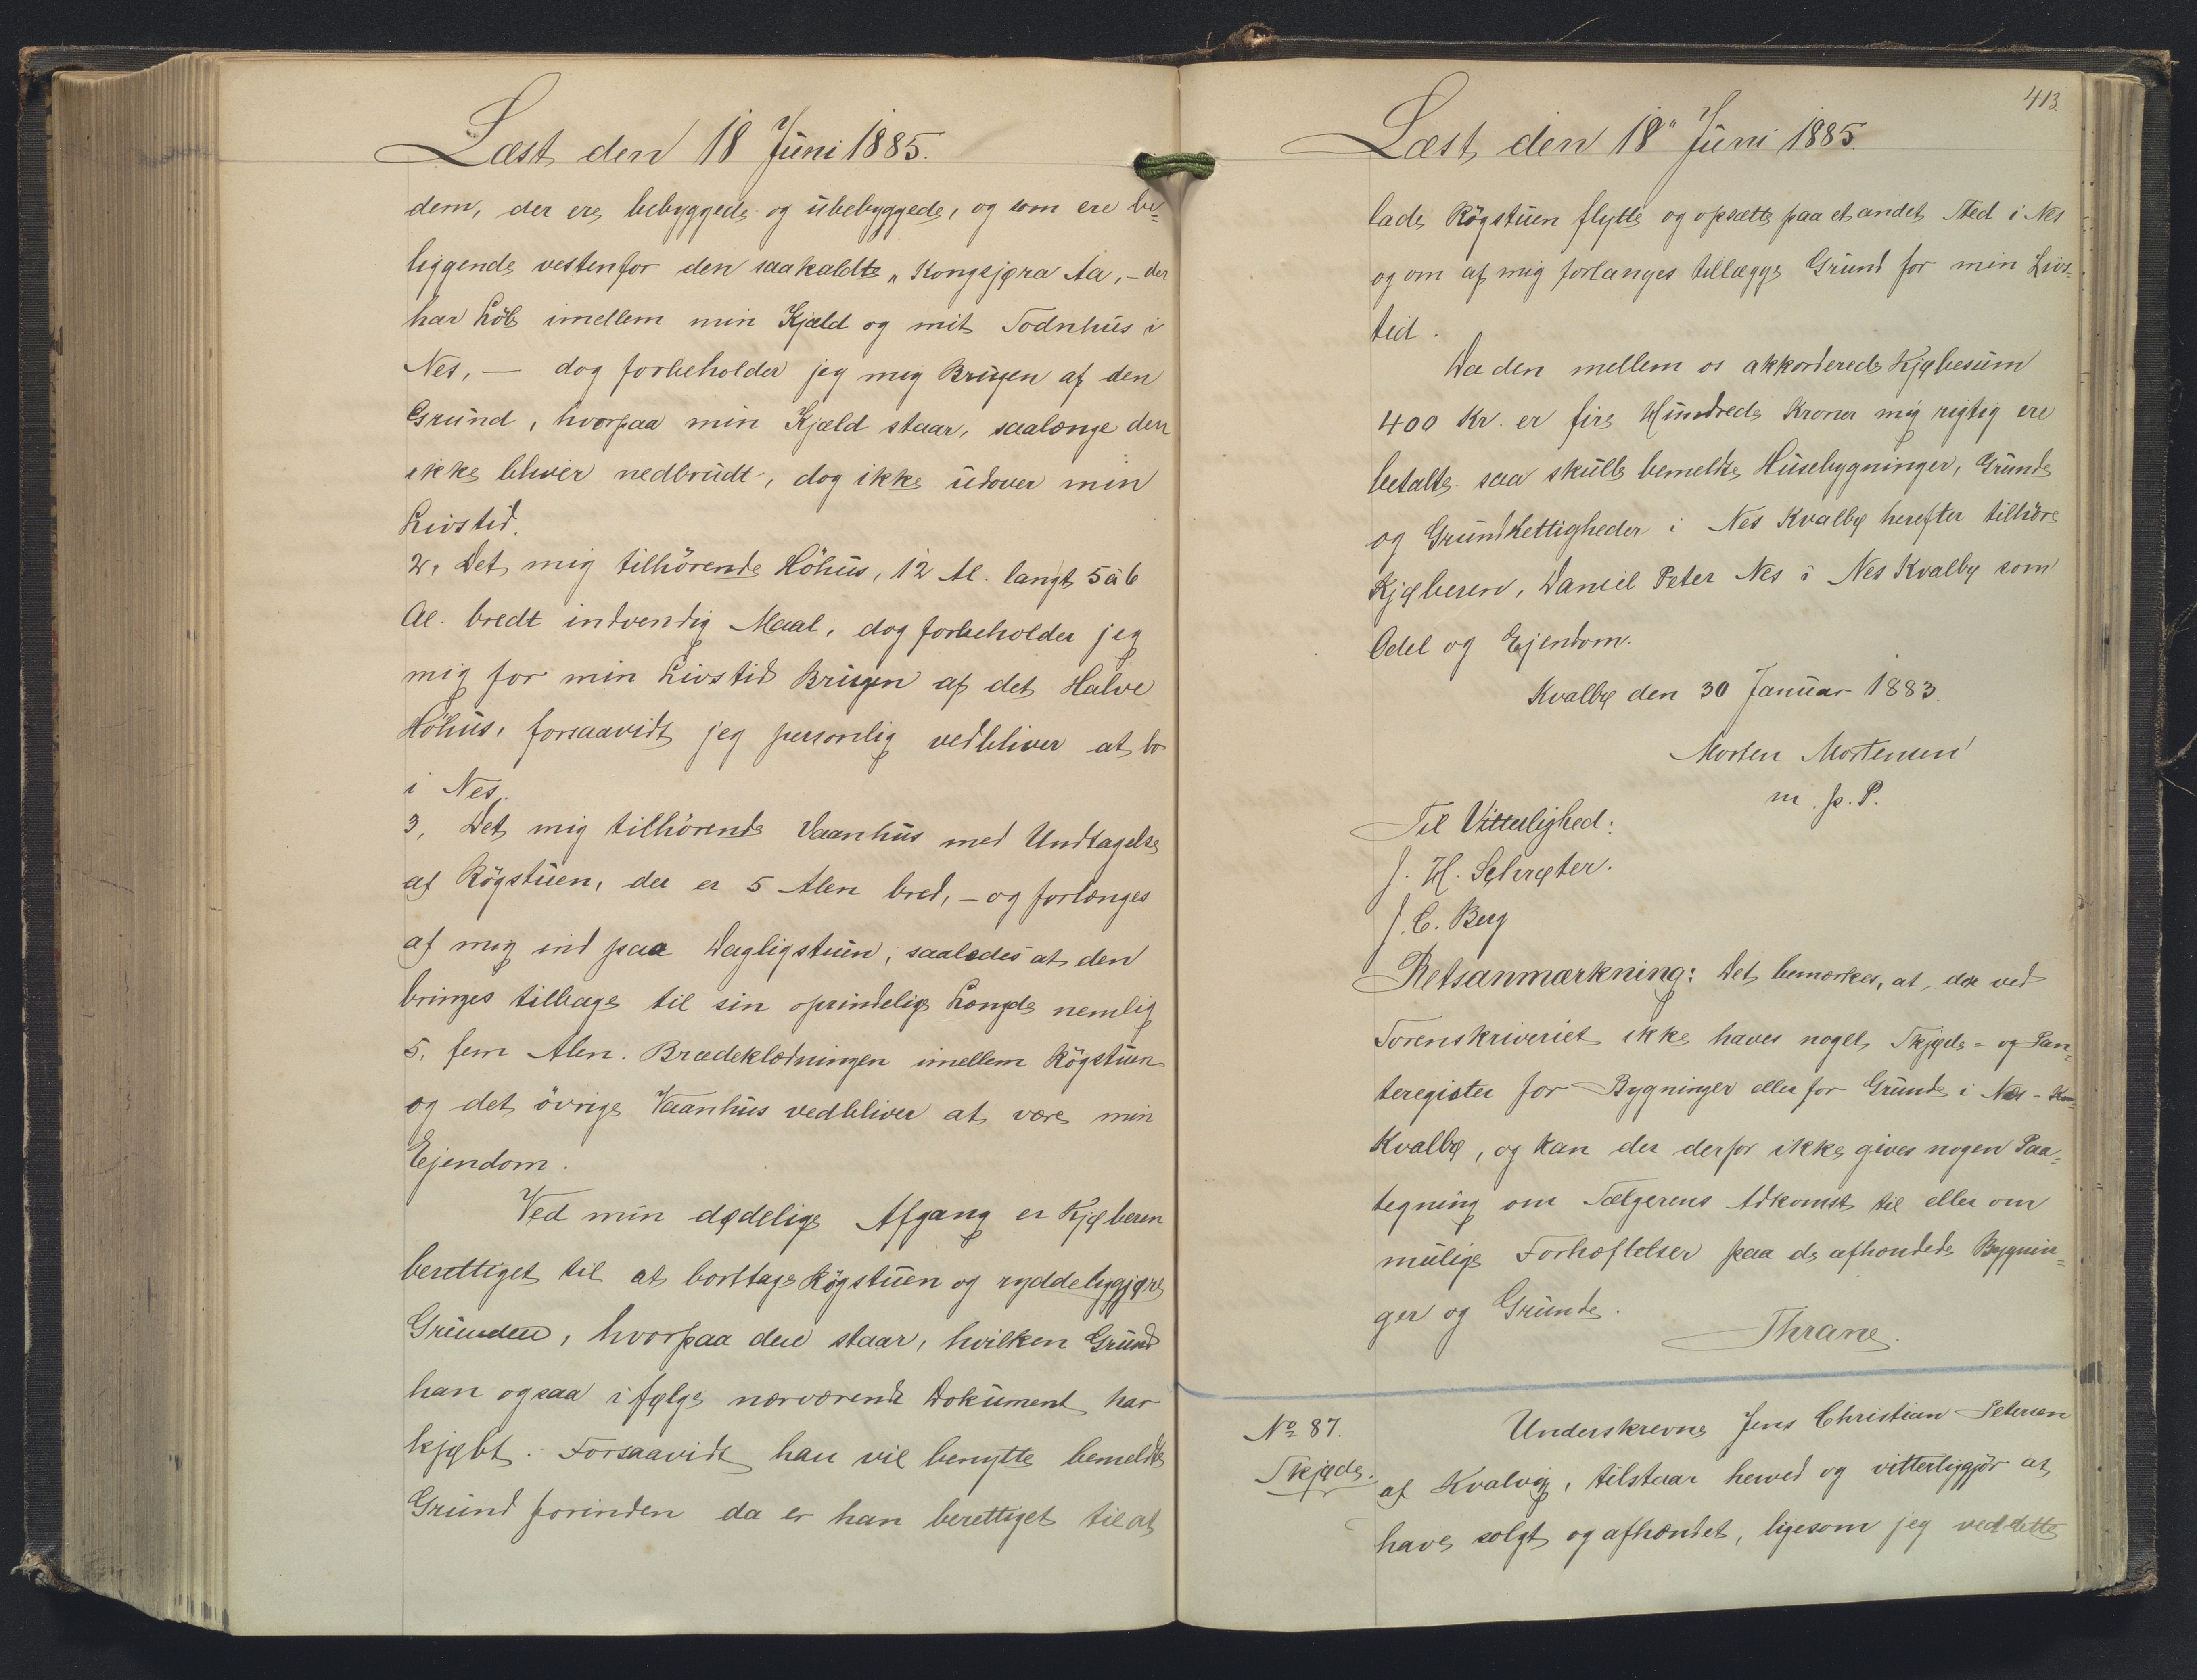 Læst den 18 Juni 1885.
dem, der ere bebyggede og ubebyggede, og som ere be=
liggende vestenfor den saakaldte „Kongsjøra Aa, – der
har Löb imellem min Kjæld og mit Todnhus i
Nes, – dog forbeholder jeg mig Brugen af den
Grund, hvorpaa min Kjæld staar, saalænge den
ikke bliver nedbrudt, dog ikke udover min
Livstid.
2. Det mig tilhörende Höhus, 12 Al. langt 5 à 6
Al. bredt indvendig Maal, dog forbeholder jeg
mig for min Livstid Brugen af det Halve
Höhus, forsaavidt jeg personlig vedbliver at bo
i Nes.
3. Det mig tilhörende Vaanhus med Undtagelse
af Rögstuen, der er 5 Alen bred, – og forlænges
af mig ind paa Dagligstuen, saaledes at den
bringes tilbage til sin oprindelige Længde nemlig
5. fem Alen. Brædeklædningen imellem Rögstuen
og det övrige Vaanhus vedbliver at være min
Ejendom.
Ved min dødelige Afgang er Kjøberen
berettiget til at borttage Røgstuen og ryddeliggjøre
Grunden, hvorpaa den staar, hvilken Grund
han ogsaa ifølge nærværende Dokument har
kjøbt. Forsaavidt han vil benytte bemeldte
Grund forinden da er han berettiget til at
413
Læst den 18" Juni 1885.
lade Rögstuen flytte og opsætte paa et andet Sted i Nes
og om af mig forlanges tillægge Grund for min Livs=
tid.
Da den mellem os akkorderede Kjøbesum
400 Kr. er fire Hundrede Kroner mig rigtig ere
betalte saa skulle bemeldte Husebygninger, Grunde
og Grundrettigheder i Nes Kvalbø herefter tilhöre
Kjøberen, Daniel Peter Nes i Nes Kvalbø som
Odel og Ejendom.
Kvalbø den 30 Januar 1883.
Morten Mortensen
m. p. P.
Til Vitterlighed:
J. H. Schrøter.
J. C. Berg
Retsanmærkning: Det bemærkes, at der ved
Sorenskriveriet ikke haves noget Skjøde- og Pan=
teregister for Bygninger eller for Grunde i Nes -
Kvalbø, og kan der derfor ikke gives nogen Paa=
tegning om Sælgerens Adkomst til eller om
mulige Forhæftelser paa de afhændede Bygnin=
ger og Grunde.
Thrane.
No 87.
Skjøde.
Underskrevne Jens Christian Petersen
af Kvalvig, tilstaar herved og vitterliggjör at
have solgt og afhændet, ligesom jeg ved dette